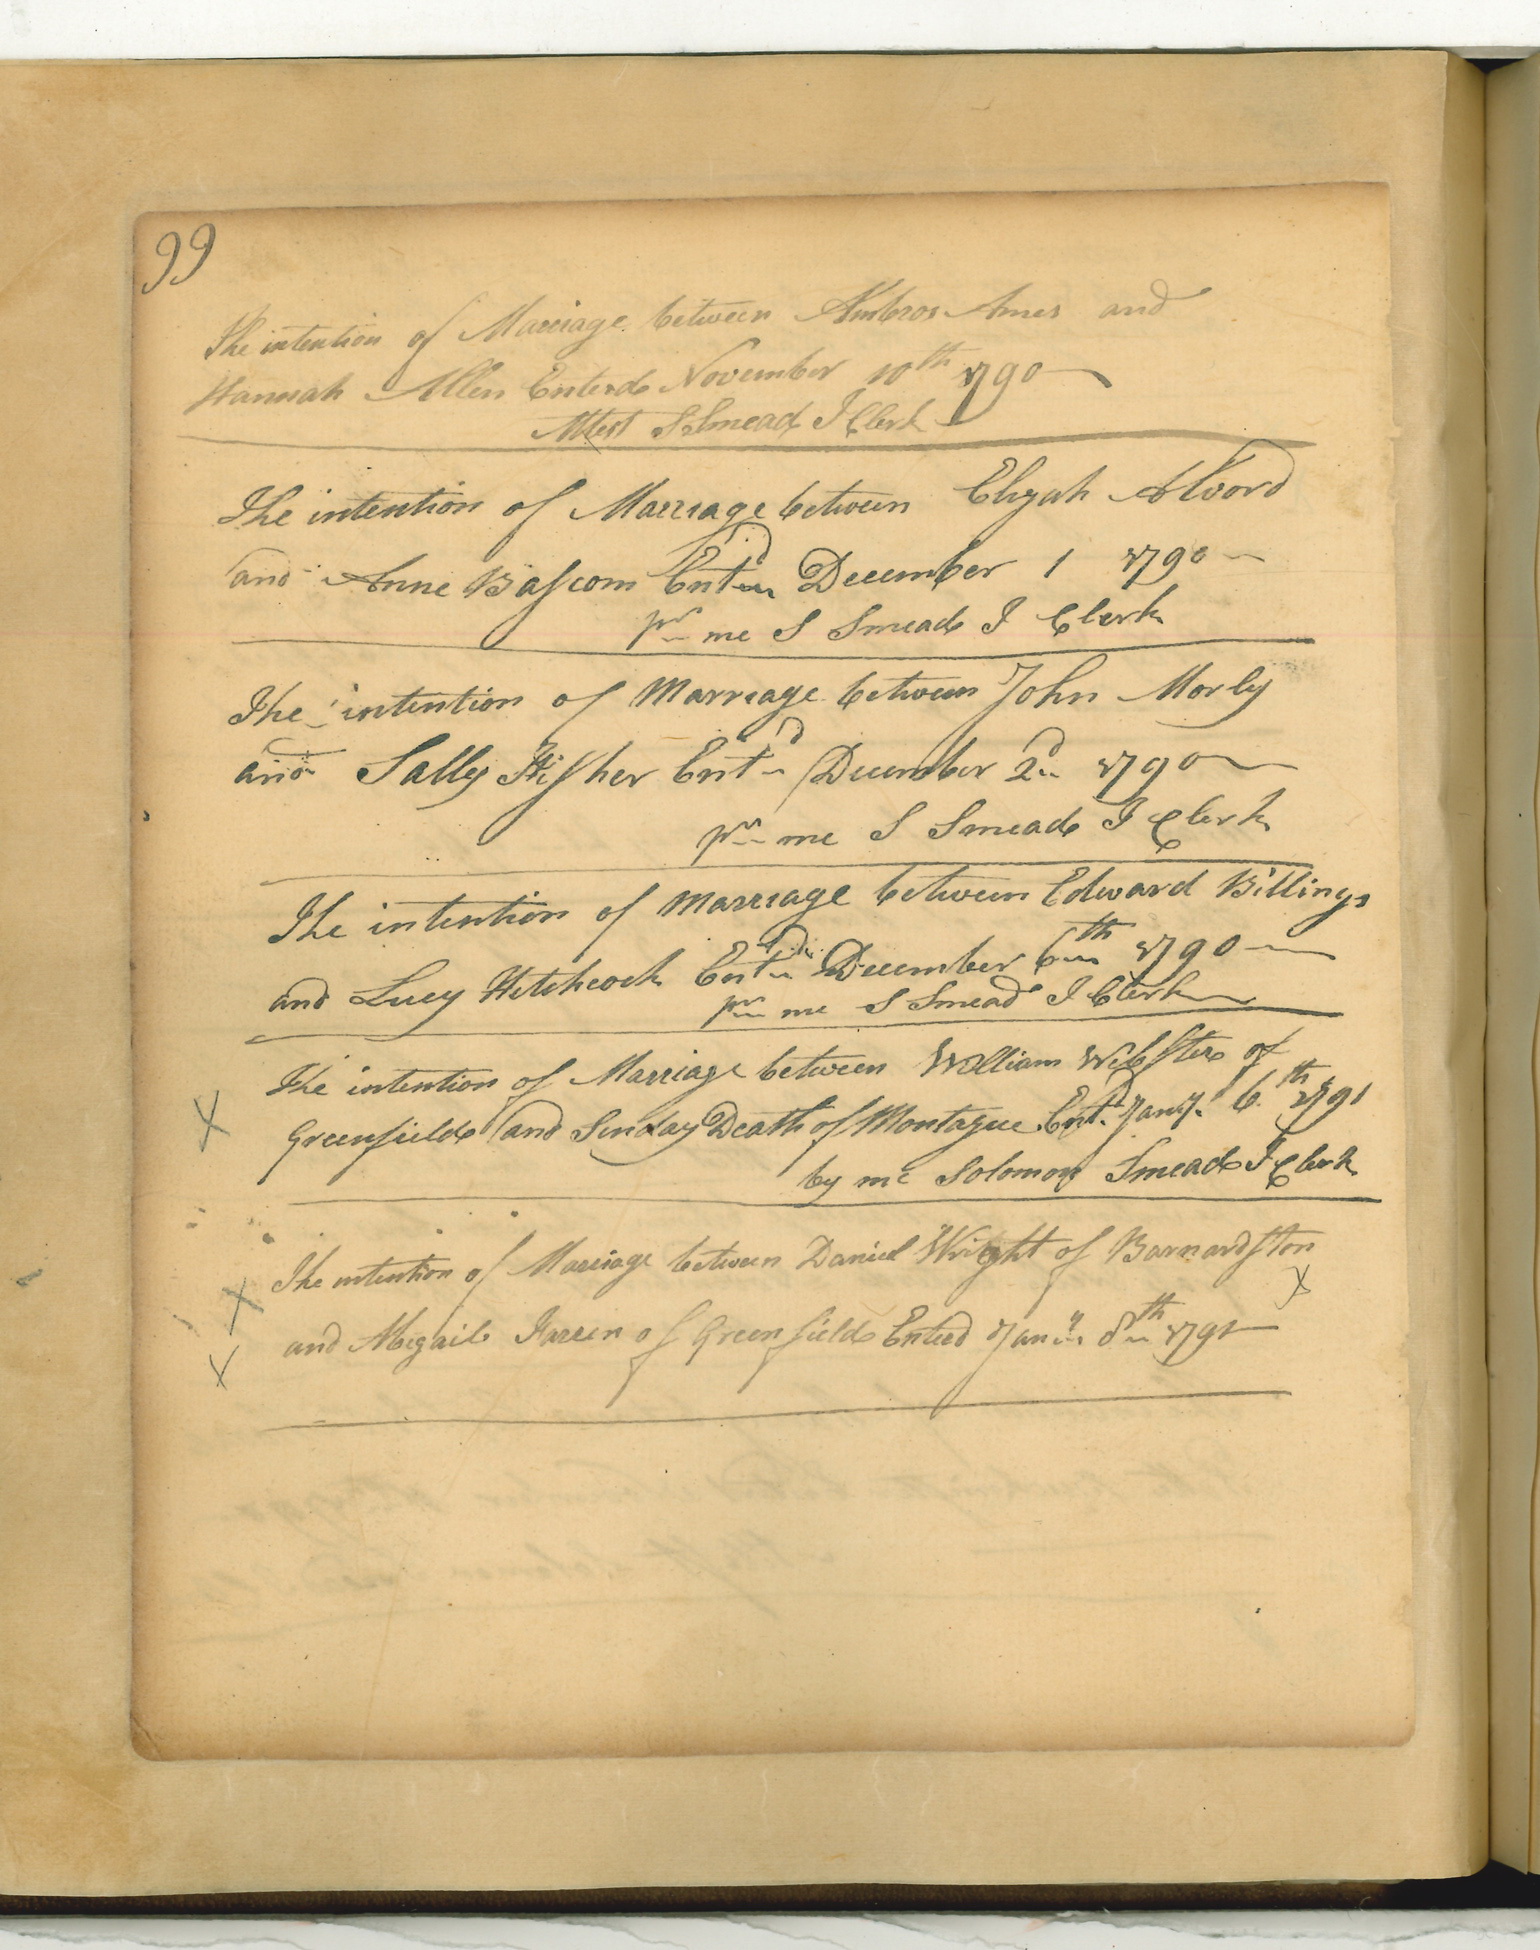 99
The intention of Marriage between Ambros Ames and
Hannah Allen Enterd November 10th 1790
Attest S Smead T Clerk
The intention of Marriage between Elijah Alvord
and Anne Bascom Entd December 1 1790
pr me S Smead T Clerk
The intention of Marriage between John Morly
and Sally Fisher Entd December 2d 1790
pr me S Smead T Clerk
The intention of Marriage between Edward Billings
and Lucy Hitchcock Entd December 6th 1790
pr me S Smead T Clerk
The intention of Marriage between William Webster of
X Greenfield and Death of Montague Entd Jany. 6th 1791
by me Solomon Smead T Clerk
X The intention of Marriage between Daniel Wright of Barnardston X
X and Abigail of Greenfield Entred Jany 8th 1791